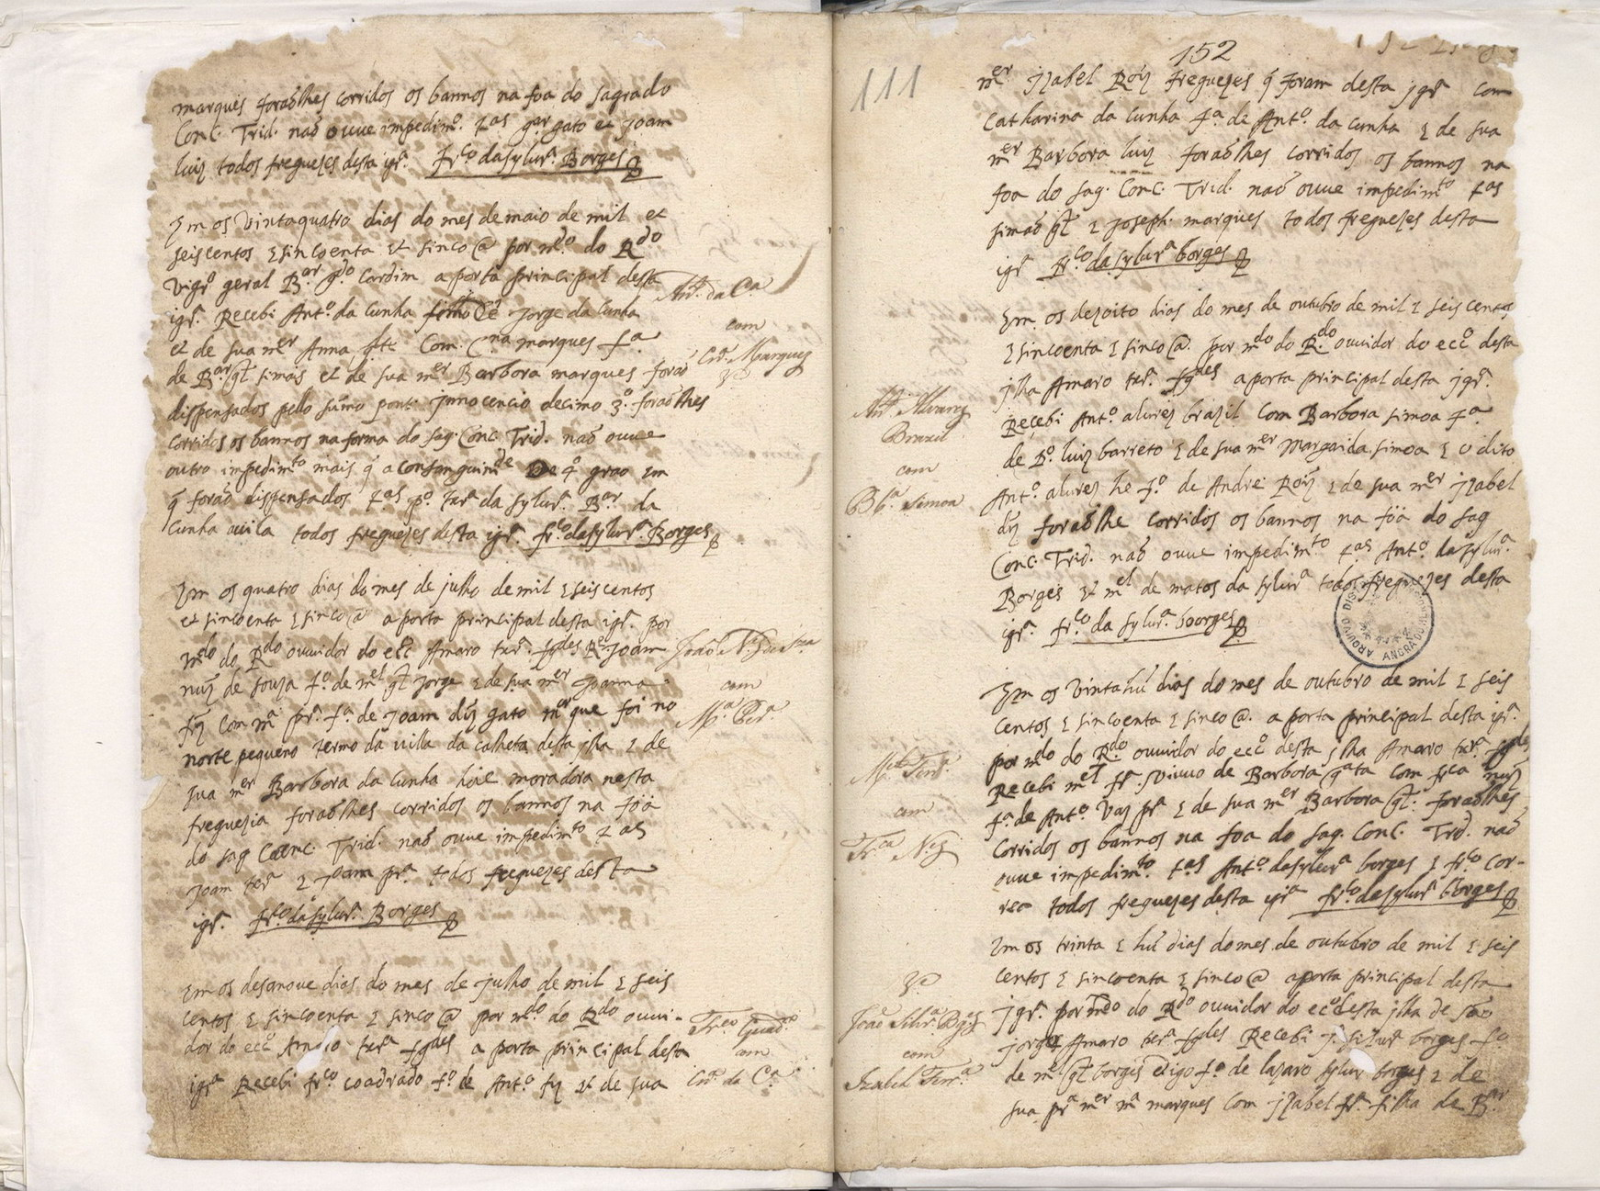 marques foraõlhes corridos os bannos na foa do sagrado
Conc. Trid. naõ ouue impedimº. tas gar gato et Joam
luis todos freguezes desta igrª. frcº da syluª. Borges
Em os Vinta quatro dias do mes de maio de mil et
seiscentos e sincoenta et sinco @ por mdo do Rdo
vigrº geral Bar gdo Cardim a porta principal desta
igrª. Recebi Antº. da Cunha filho de Jorge da Cunha
et de sua mer Anna com Cna marques fª
de Bar glz simas et de sua mer Barbora marques foraõ
dispensados pelo sumo pont. Innocencio decimo foraõlhes
corridos os bannos na forma do sag. Conc. Trid. naõ ouue
outro impedimto mais q̃ a consanguinde de 4º grao em
q̃ foraõ dispensados tas pº. teixrª da syluª. Bar da
Cunha auila todos freguezes desta igrª. frcº da syluª. Borges
Antº. da Cª
com
Cnª. Marques
Em os quatro dias do mes de julho de mil e seis centos
et sincoenta e sinco @ a porta principal desta igrª. por
mdo do Rdo ouuidor do eccº Amaro teixrª. fgdes Rº. Joam
nuz de souza fº. de mel glz Jorge e de sua mer Joanna
com mª prª. fª. de Joam dyz gato mer que foi no
norte pequeno termo da villa da calheta desta ilha e de
sua mer Barbora da Cunha hoie moradora nesta
freguezia foraõlhes corridos os bannos na foa
do sag Conc. Trid. naõ ouue impedimto tas
Joam teixrª e Joam prª todos freguezes desta
igrª. frcº da syluª. Borges
João Nz de Sza
com
Mª. Perª.
Em os desanoue dias do mes de Julho de mil e seis
centos e sincoenta e sinco @ por mdo do Rdo ouui-
dor do eccº Amaro teixrª fgdes a porta principal desta
igrª Recebi frcº coadrado fº de Antº fz et de sua
com
Cnª. da Cª
152
111
mer Izabel Roiz freguezes q̃ foram desta igrª com
Catharina da Cunha fª. de Antº. da Cunha e de sua
mer Barbora luiz foraõlhes corridos os bannos na
foa do sag. Conc. Trid. naõ ouue impedimto tas
simaõ glz e Joseph marques todos freguezes desta
igrª frcº da syluª borges
Em os dezoito dias do mes de outubro de mil e seis centos
e sincoenta e sinco @. por mdo do Rdo ouuidor do eccº desta
ilha Amaro teixrª. fgdes a porta principal desta igrª.
Recebi Antº. alurez brazil com Barbora simoa fª
de Bº. luiz barreto e de sua mer Margaida simoa e o dito
Antº. aluez he fº. de Andre Roiz e de sua mer Izabel
dyz foraõlhe corridos os bannos na foa do sag
Conc. Trid. naõ ouue impedimto tas Antº. da syluª.
Borges et mel de matos da syluª todos freguezes desta
igrª. frcº da syluª. boorges
Antº. Aluarez
Brazil
com
Bbª. Simoa
Em os Vinta hũ dias do mes de outubro de mil e seis
centos e sincoenta e sinco @. a porta principal desta igrª.
por mdo do Rdo ouuidor do eccº desta ilha Amaro teixrª. fgdes
Recebi mel frª. viuuo de Barbora com frca nuz
fª. de Antº. Vaz prª e de sua mer Barbora glz. foraõlhes
corridos os bannos na foa do sag. Conc. Trid. naõ
ouue impedimto. tas Antº. da syluª borges e frcº Cor-
rea todos freguezes desta igrª frcº da syluª borges
Mel Ferrª.
com
Frca Nz
Em os trinta e hũ dias do mes de outubro de mil e seis
centos e sincoenta e sinco @ a porta principal desta
igrª. por mdo do Rdo ouuidor do eccº desta ilha de são
Jorge Amaro teixrª fgdes Recebi J. siluª borges fº
de mel glz borges digo fº. de lazaro sylua borges e de
sua prª mer mª marques com Izabel frª. filha de Bar
João Silvª. Bges
com
Izabel Ferrª.